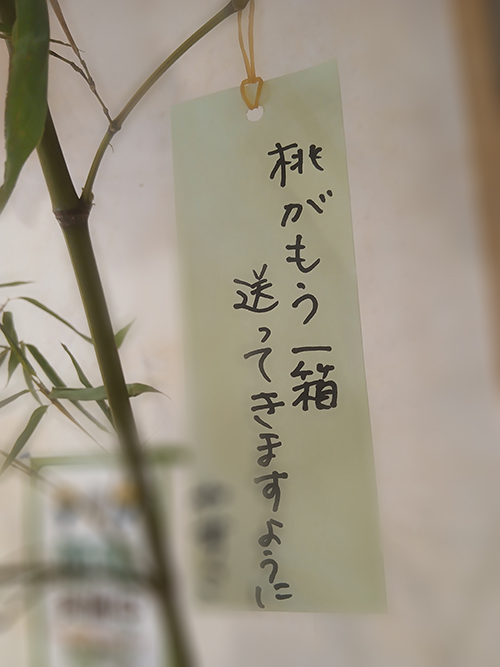 桃がもう一箱
送ってきますように